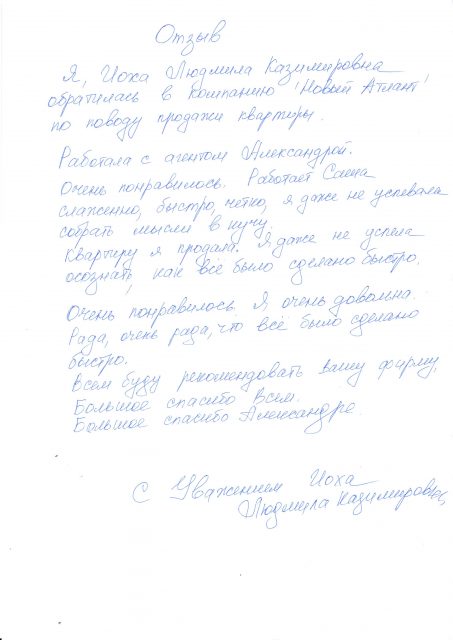 Отзыв
Я, Иоха Людмила Казимировна
обратилась в компанию 'Новый Атлант'
по поводу продажи квартиры.
Работала с агентом Александрой.
Очень понравилось. Работает Саша
слаженно, быстро, четко, я даже не успевала
собрать мысли в кучу.
Квартиру я продала. Я даже не успела
осознать, как всё было сделано быстро.
Очень понравилось. Я, очень довольна.
Рада, очень рада, что всё было сделано
быстро.
Всем буду рекомендовать вашу фирму.
Большое спасибо Всем.
Большое спасибо Александре.
С Уважением Иоха
Людмила Казимировна